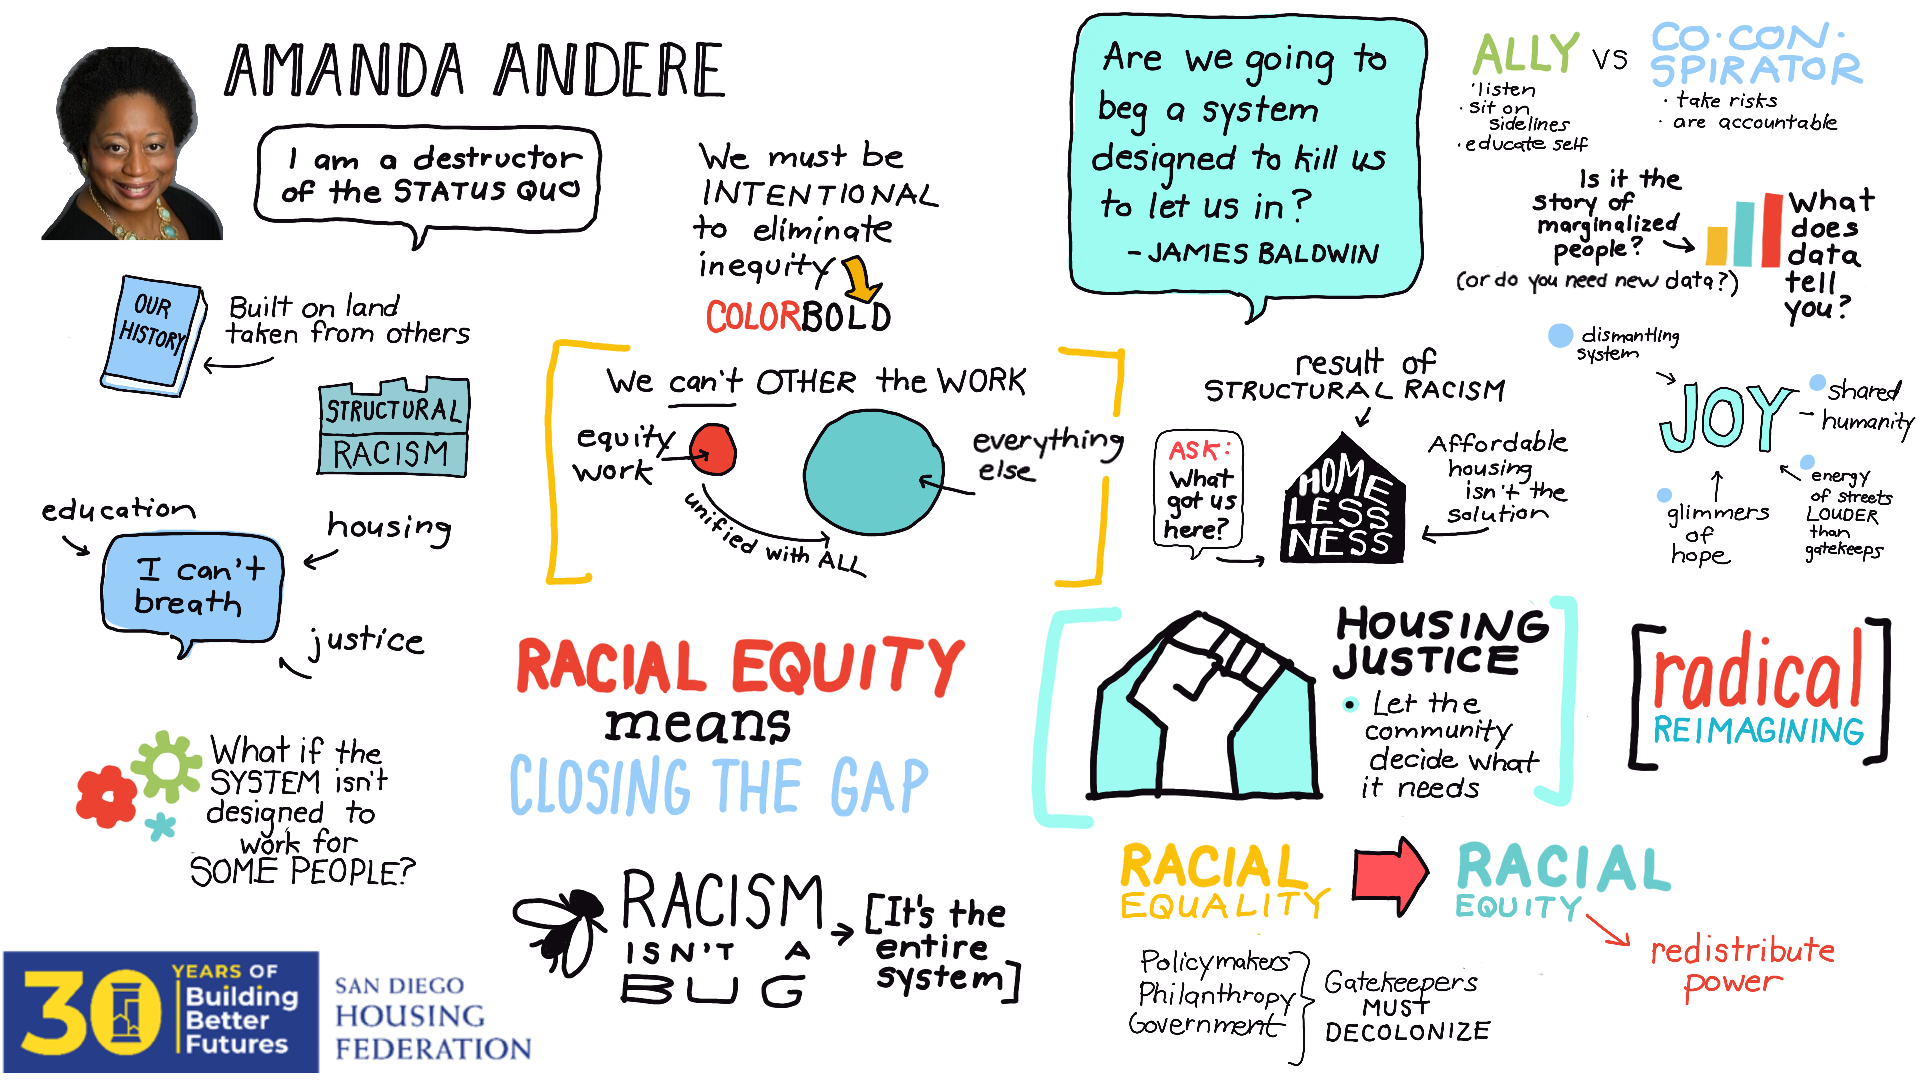 AMANDA ANDERE
I am a destructor
of the STATUS QUO
OUR
HISTORY
Built on land
taken from others
STRUCTURAL
RACISM
education
housing
I can't
breath
justice
What if the
SYSTEM isn't
designed to
work for
SOME PEOPLE?
30
YEARS OF
Building
Better
Futures
SAN DIEGO
HOUSING
FEDERATION
We must be
INTENTIONAL
to eliminate
inequity
COLORBOLD
We can't OTHER the WORK
equity
work
everything
else
unified with ALL
RACIAL EQUITY
means
CLOSING THE GAP
RACISM
ISN'T A
BUG
[It's the
entire
system]
Are we going to
beg a system
designed to kill us
to let us in?
- JAMES BALDWIN
result of
STRUCTURAL RACISM
ASK:
What
got us
here?
HOME
LESS
NESS
Affordable
housing
isn't the
solution
HOUSING
JUSTICE
• Let the
community
decide what
it needs
RACIAL
EQUALITY
RACIAL
EQUITY
redistribute
power
Policymakers
Philanthropy
Government
Gatekeepers
MUST
DECOLONIZE
ALLY VS CO·CON·
SPIRATOR
· listen
· sit on
sidelines
· educate self
· take risks
· are accountable
Is it the
story of
marginalized
people?
(or do you need new data?)
What
does
data
tell
you?
dismantling
system
JOY
shared
humanity
glimmers
of
hope
energy
of streets
LOUDER
than
gatekeeps
[radical
REIMAGINING]